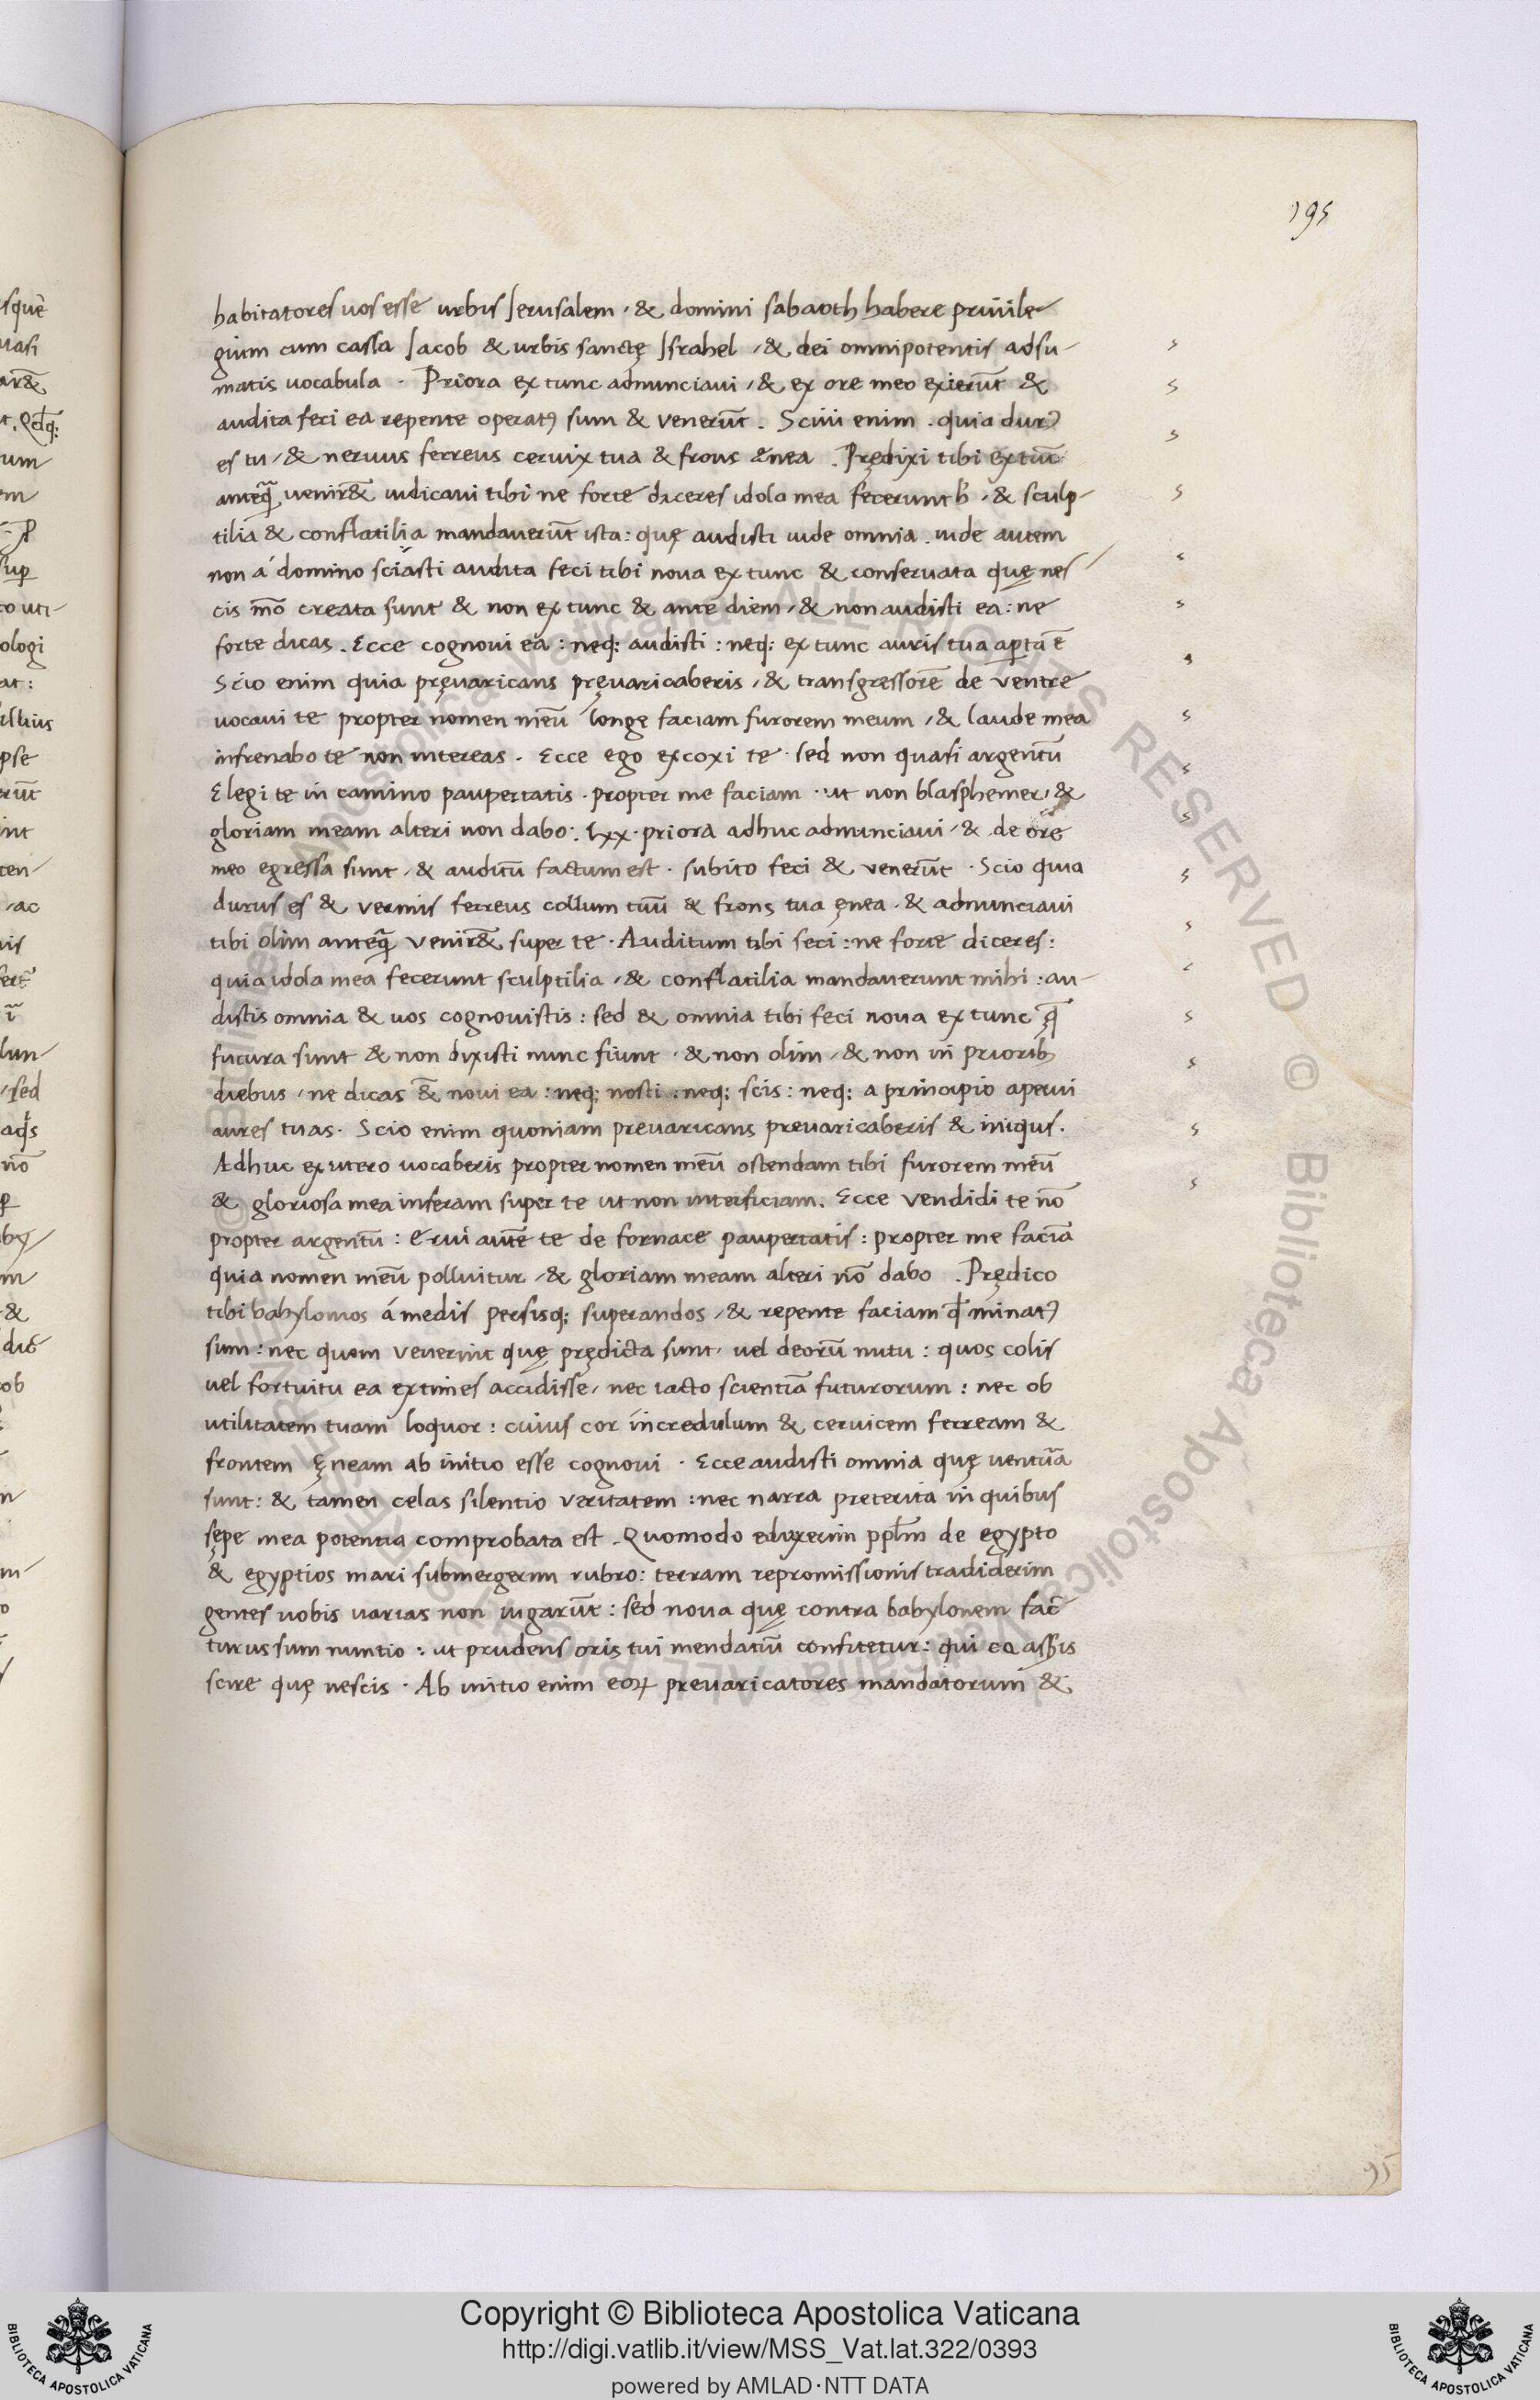 195
habitatores uos esse urbis Jerusalem, & domini sabaoth habere priuile-
gium cum cassa Jacob & urbis sanctę Jsrahel, & dei omnipotentis adsu-
matis uocabula. Priora ex tunc adnunciaui, & ex ore meo exierūt &
audita feci ea repente operatꝰ sum & venerūt. Sciui enim. quia durꝰ
es tu, & neruus ferreus ceruix tua & frons ænea. Prędixi tibi ex tūc
anteq̃ uenir& indicaui tibi ne forte diceres idola mea fecerunt h̓, & sculp-
tilia & conflatilia mandauerūt ista: quę audisti uide omnia. uide autem
non á domino sciasti audita feci tibi noua ex tunc & conseruata quę nes
cis mō creata sunt & non ex tunc & ante diem, & non audisti ea: ne
forte dicas. Ecce cognoui ea: neq; audisti: neq; ex tunc auris tua aꝑta ē
Scio enim quia pręuaricans pręuaricaberis, & transgressorē de ventre
uocaui te propter nomen meū longe faciam furorem meum, & laude mea
infrenabo te non intereas. Ecce ego excoxi te. sed non quasi argentū
Elegi te in camino paupertatis. propter me faciam. ut non blasphemer, &
gloriam meam alteri non dabo. Lxx. priora adhuc adnunciaui, & de ore
meo egressa sunt, & auditū factum est. subito feci & venerūt. Scio quia
durus es & vermis ferreus collum tuū & frons tua ęnea. & adnunciaui
tibi olim anteq̃ venir& super te. Auditum tibi feci: ne forte diceres:
quia idola mea fecerunt sculptilia, & conflatilia mandauerunt mihi: au-
distis omnia & uos cognouistis: sed & omnia tibi feci noua ex tunc q̃
futura sunt & non dixisti nunc fiunt. & non olim, & non in priorib;
diebus, ne dicas & noui ea: neq; nosti: neq; scis: neq; a principio aperui
aures tuas. Scio enim quoniam preuaricans preuaricaberis & iniqus.
Adhuc ex utero uocaberis propter nomen meū ostendam tibi furorem meū
& gloriosa mea inferam super te ut non interficiam. Ecce vendidi te nō
propter argentū: Erui autē te de fornace paupertatis: propter me faciā
quia nomen meū polluitur, & gloriam meam alteri nō dabo. Prędico
tibi babylonios á medis persisq; superandos, & repente faciam qđ minatꝰ
sum: nec quom venerint quę prędicta sunt, uel deorū nutu: quos colis
uel fortuitu ea extimes accidisse, nec iacto scientiā futurorum: nec ob
utilitatem tuam loquor: cuius cor incredulum & ceruicem ferream &
frontem ęneam ab initio esse cognoui. Ecce audisti omnia quę uentura
sunt: & tamen celas silentio veritatem: nec narra preterita in quibus
sępe mea potentia comprobata est. Quomodo eduxerim pplm̄ de egypto
& egyptios mari submergerim rubro: terram repromissionis tradiderim
gentes uobis uarias non iugarūt: sed noua quę contra babylonem fac-
turus sum nuntio: ut prudens oris tui mendatiū confitetur: qui ea
scire quę nescis. Ab initio enim eoꝝ preuaricatores mandatorum &
95
© Biblioteca Apostolica Vaticana ALL RIGHTS RESERVED
Copyright © Biblioteca Apostolica Vaticana
http://digi.vatlib.it/view/MSS_Vat.lat.322/0393
powered by AMLAD·NTT DATA
BIBLIOTECA APOSTOLICA VATICANA
BIBLIOTECA APOSTOLICA VATICANA